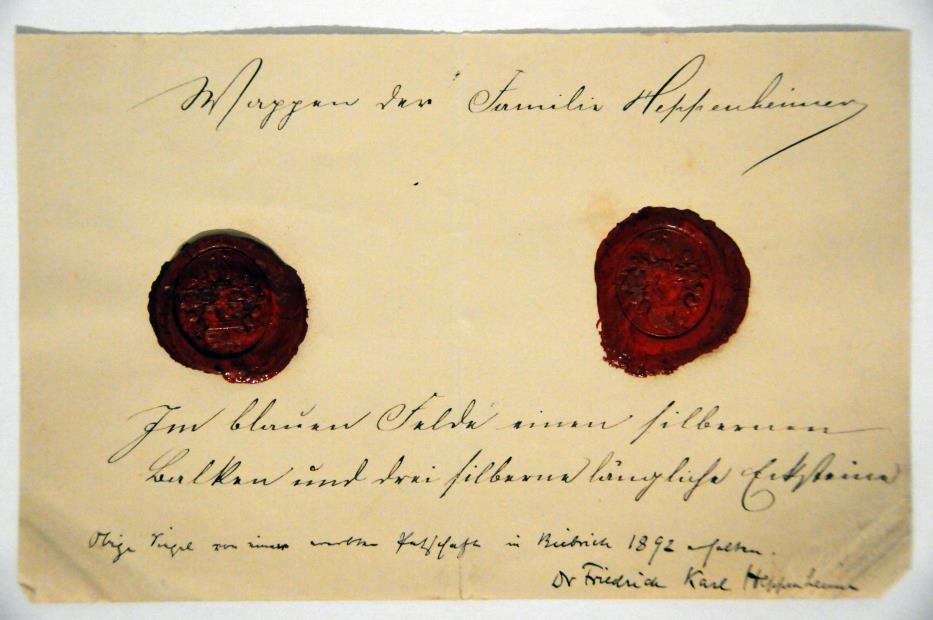 Wappen der Familie Heppenheimer
Im blauen Felde einen silbernen
Balken und drei silberne längliche Ecksteine
Obige Siegel von einer Petschaft in Biebrich 1892 erhalten.
Dr Friedrich Karl Heppenheimer